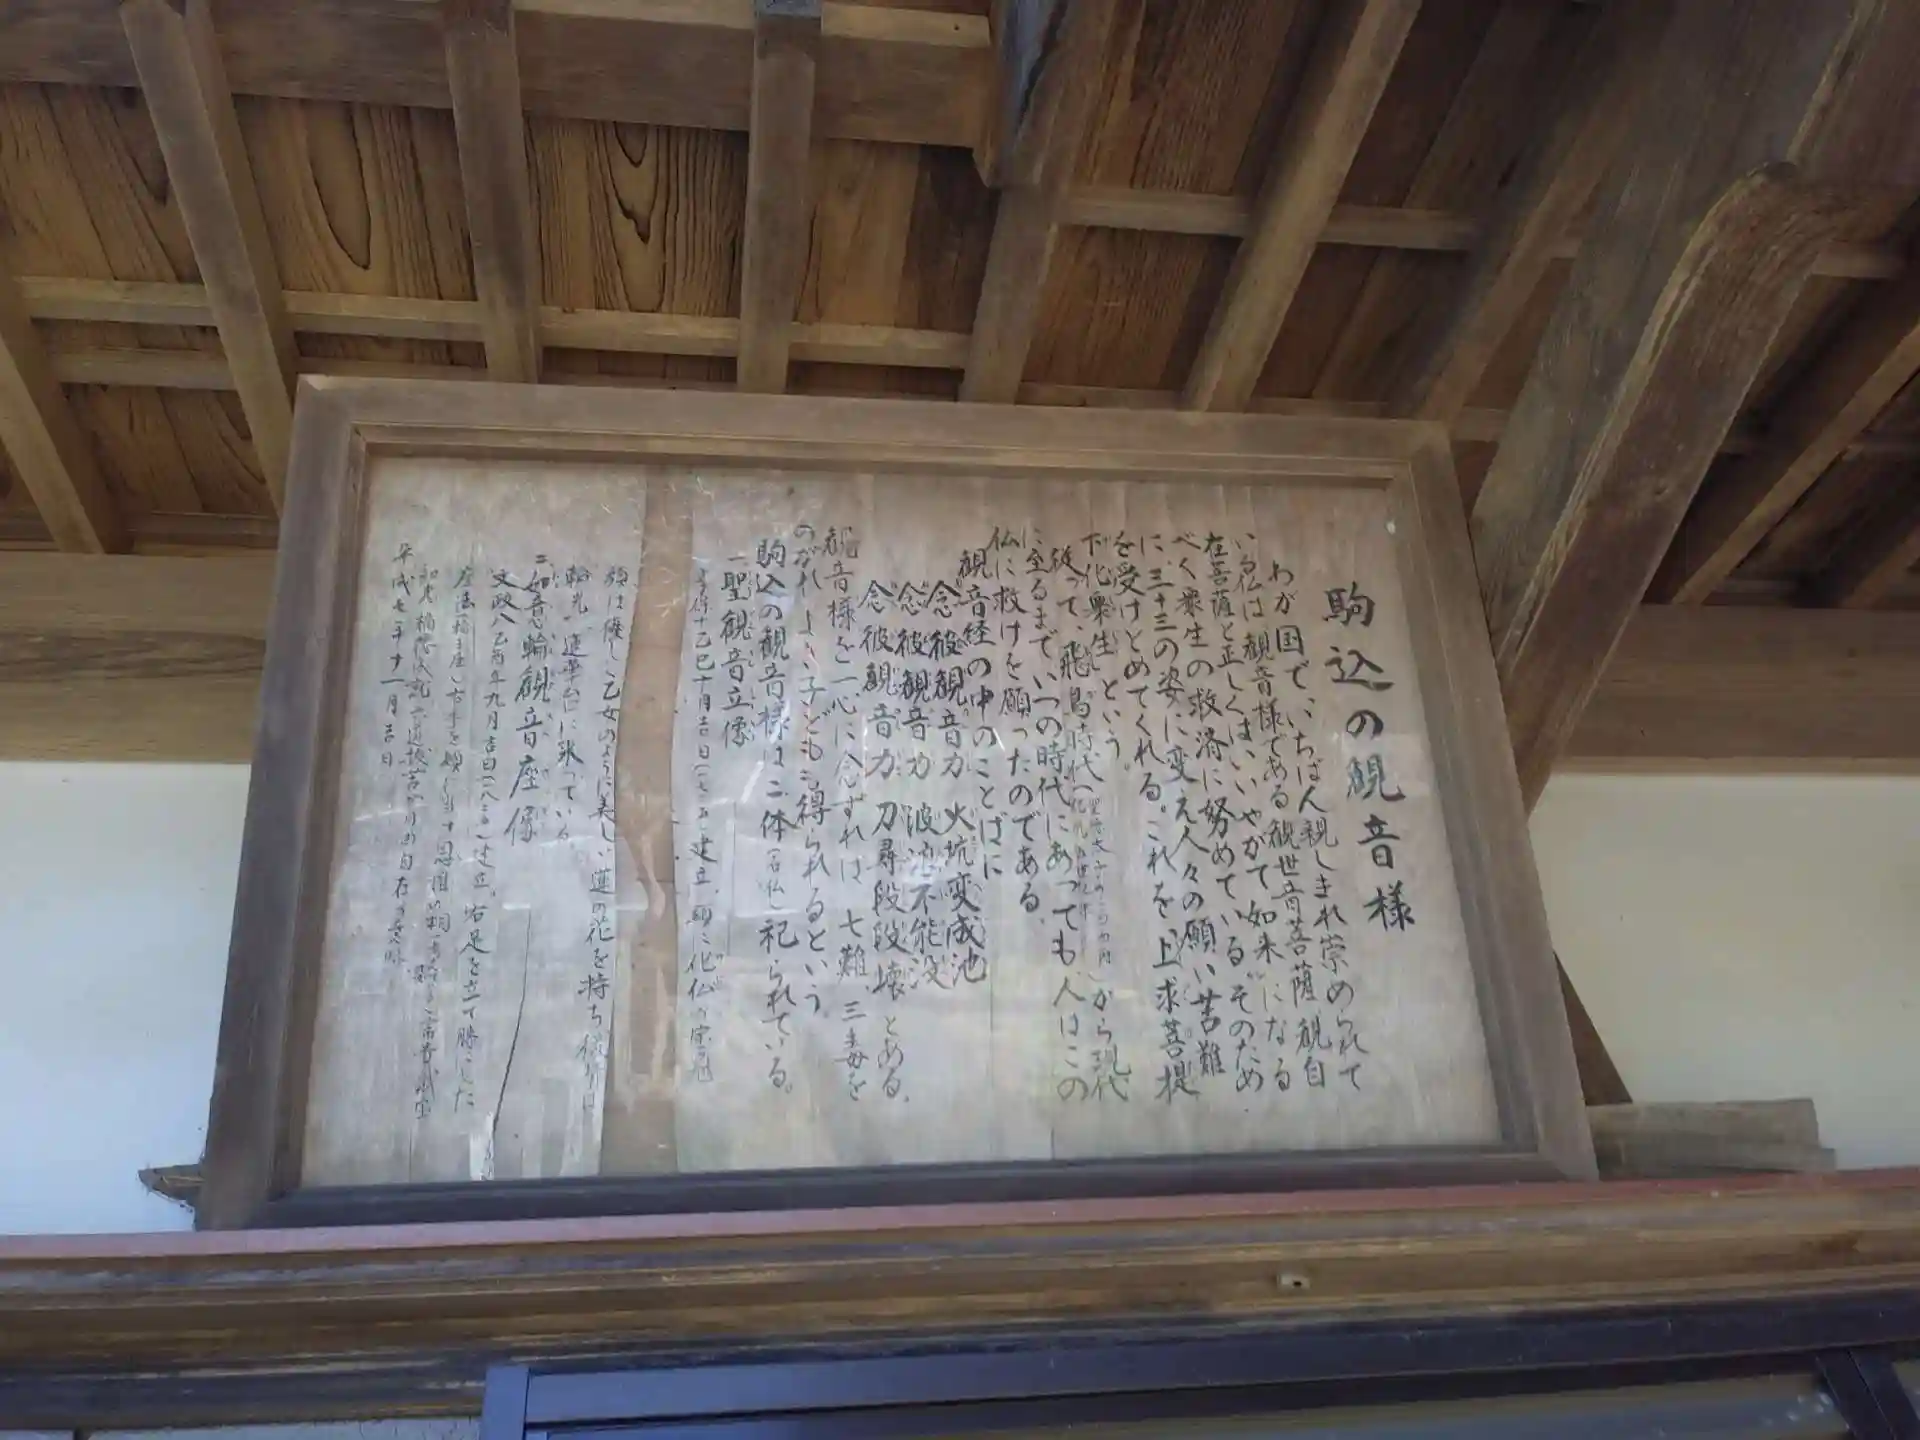 駒込の観音様
わが国で、いちばん親しまれ崇められて
いる仏は観音様である観世音菩薩、観自
在菩薩と正しくはいい、やがて如来になる
べく衆生の救済に努めている。そのため
に、三十三の姿に変え人々の願い苦難
を受けとめてくれる。これを、上求菩提
下化衆生という。
従って、飛鳥時代から現代
に至るまで、いつの時代にあっても人はこの
仏に救けを願ったのである。
観音経の中のことばに
念彼観音力 火坑変成池
念彼観音力 波浪不能没
念彼観音力 刀尋段段壊 とある。
観音様を一心に念ずれば、七難、三毒を
のがれ、よい子どもも得られるという。
駒込の観音様は二体(石仏)祀られている。
一、聖観音立像
十乙巳十月吉日建立、頭に化仏の宝冠
顔は優しい乙女のように美しい、蓮の花を持ち
輪光、蓮華台に氷っている
二、如意輪観音座像
文政八乙酉年九月吉日建立。右足を立て膝にした
平成七年十一月吉日